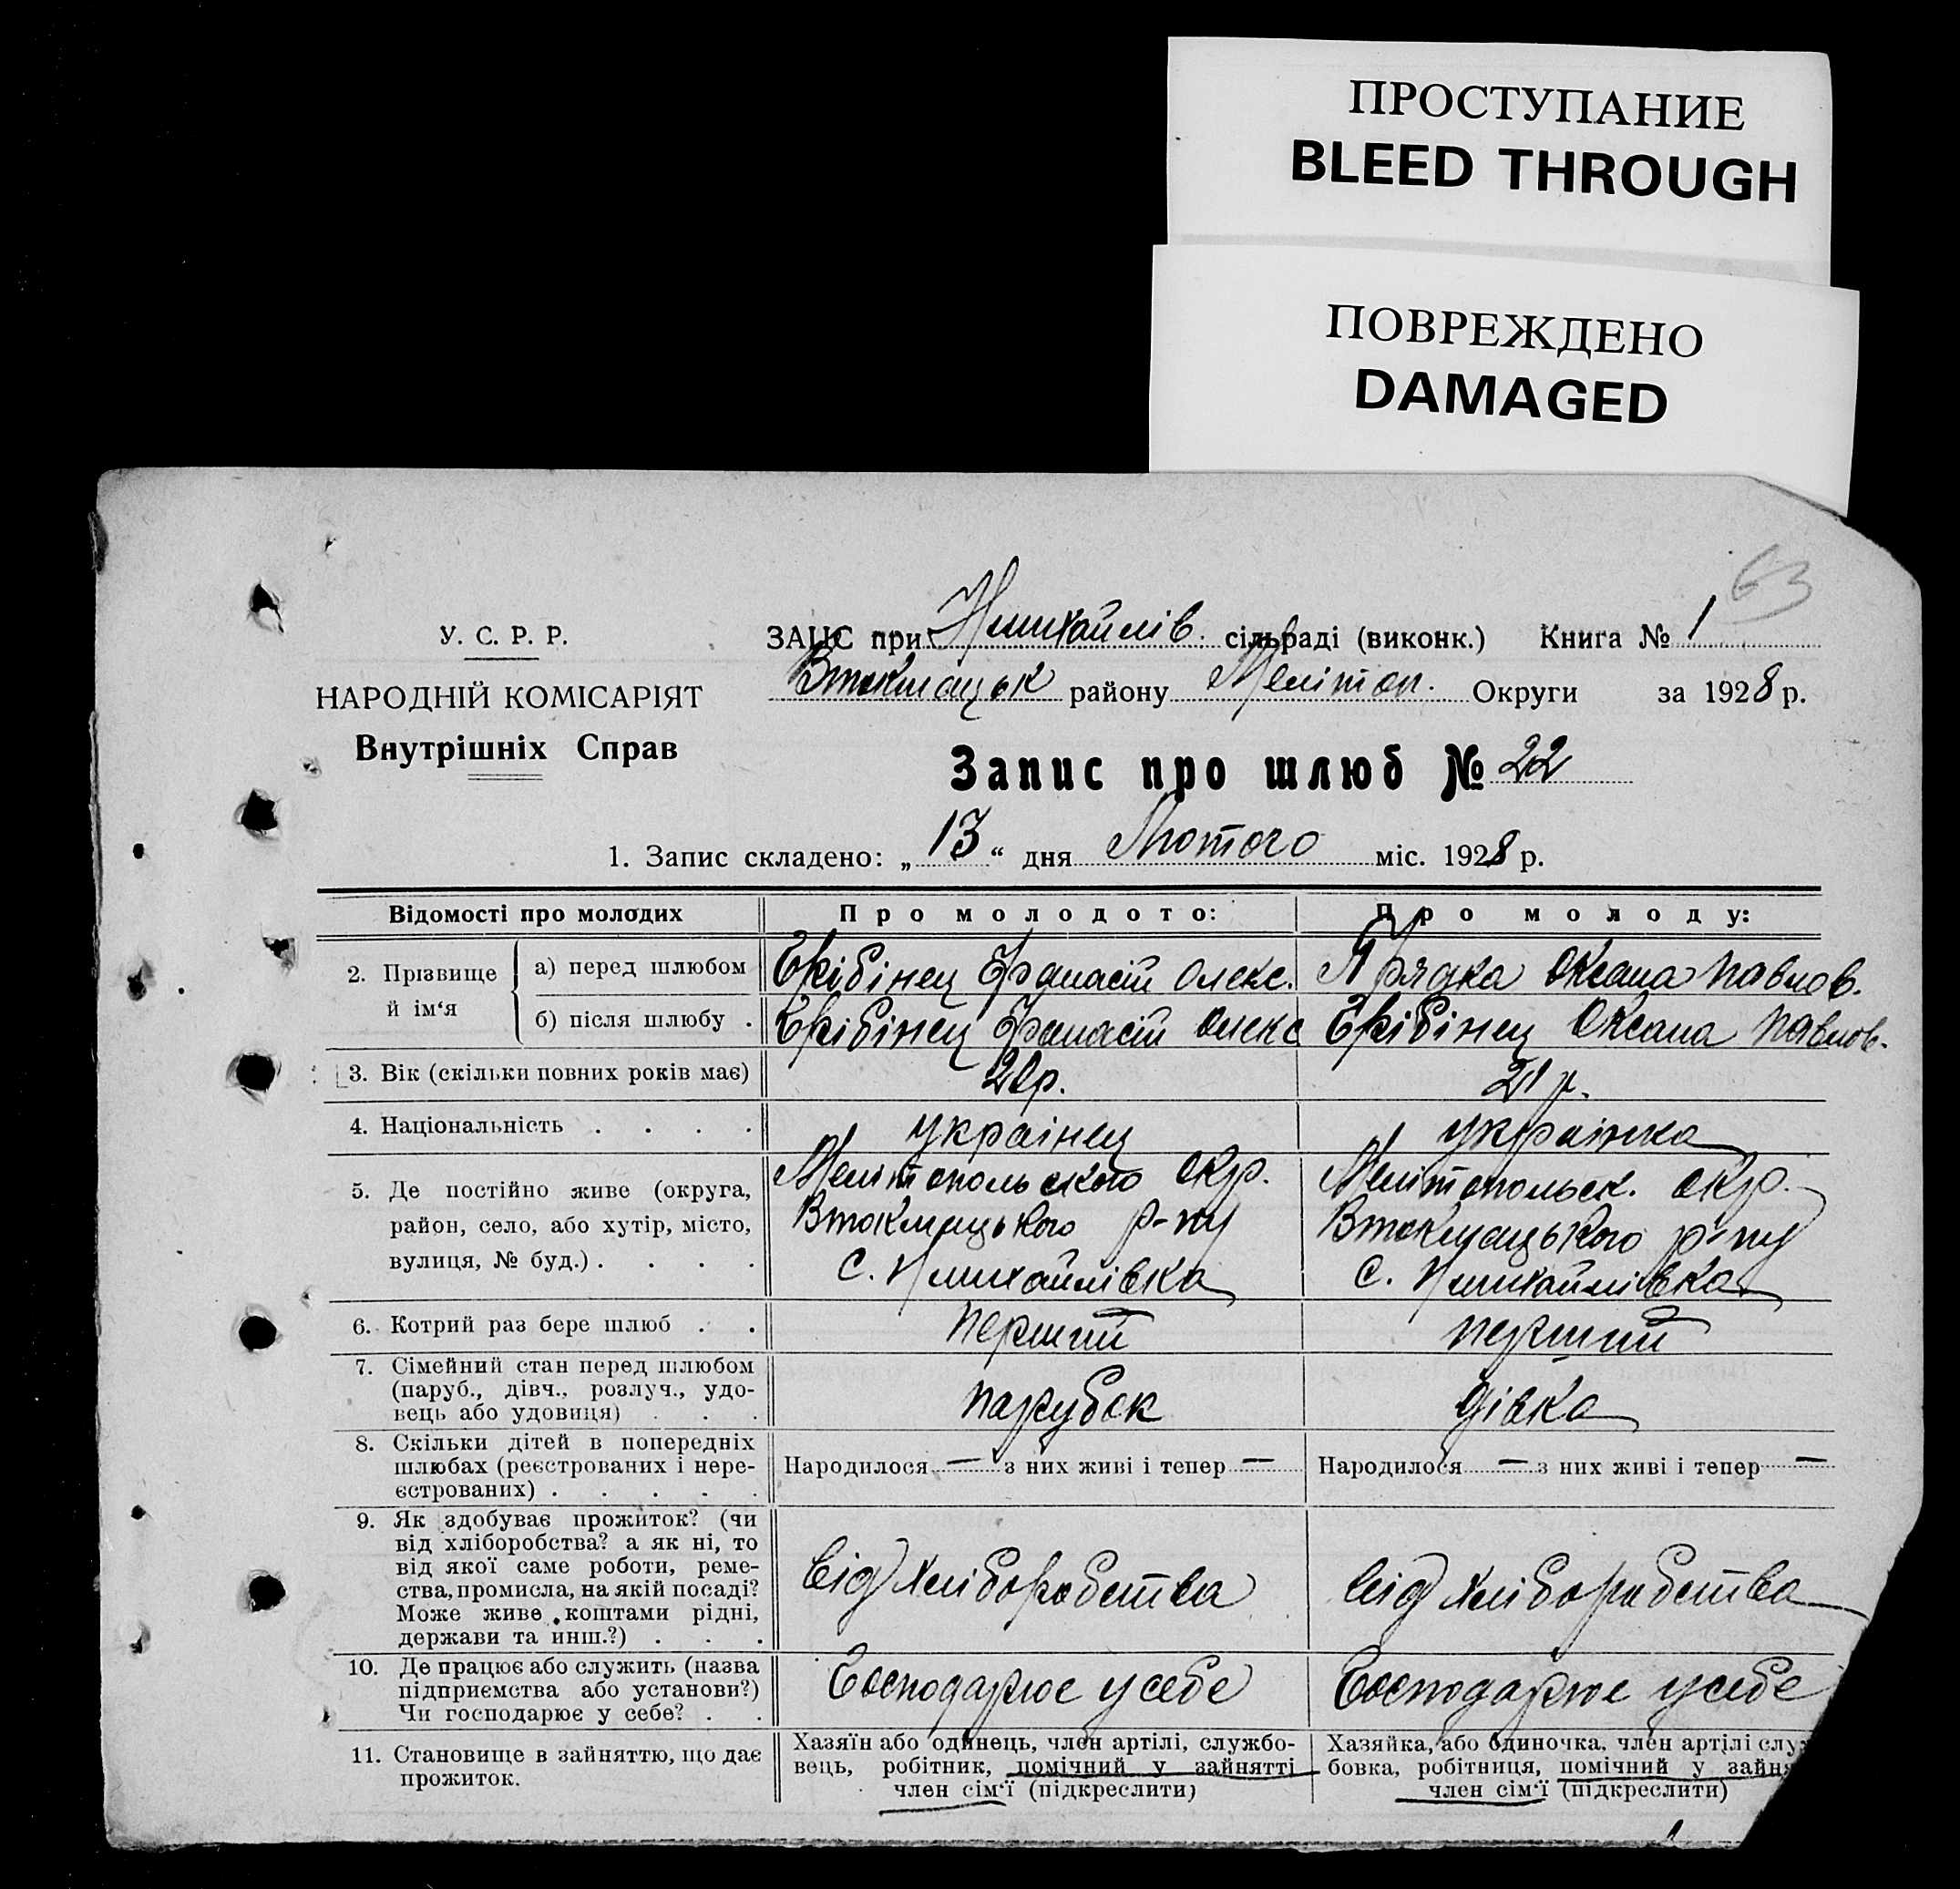 ПРОСТУПАНИЕ
BLEED THROUGH
ПОВРЕЖДЕНО
DAMAGED
63
У. С. Р. Р.
НАРОДНІЙ КОМІСАРІЯТ
Внутрішніх Справ
ЗАЦС при Нмихайлів. сільраді (виконк.) Книга № 1
Втокмацьк району Мелітоп. Округи за 1928 р.
Запис про шлюб № 22
1. Запис складено: „13“ дня Лютого міс. 1928 р.
Відомості про молодих Про молодого: Про молоду:
2. Прізвище й ім‘я
а) перед шлюбом Грібінец Фанасій Олекс. Прядка Оксана Павлов.
б) після шлюбу . Грібінец Фанасій Олекс Грібінец Оксана Павлов.
3. Вік (скільки повних років має) 21 р.
4. Національність . . . . українец українка
5. Де постійно живе (округа, район, село, або хутір, місто, вулиця, № буд.) . . . .
Мелітопольського окр. Мелітопольск. окр.
Втокмацького р-ну Втокмацького р-ну
с. Нмихайлівка с. Нмихайлівка
6. Котрий раз бере шлюб . . перший перший
7. Сімейний стан перед шлюбом
(паруб., дівч., розлуч., удо-
вець або удовиця) . . . парубок дівка
8. Скільки дітей в попередніх
шлюбах (реєстрованих і нере-
єстрованих) . . . . . Народилося — з них живі і тепер — Народилося — з них живі і тепер —
9. Як здобуває прожиток? (чи
від хліборобства? а як ні, то
від якої саме роботи, реме-
ства, промисла, на якій посаді?
Може живе коштами рідні,
держави та инш.?) . . . від хліборобства від хліборобства
10. Де працює або служить (назва
підприємства або установи?)
Чи господарює у себе? . . Господарює у себе Господарює у себе
11. Становище в зайняттю, що дає
прожиток.
Хазяїн або одинець, член артілі, службо-
вець, робітник, помічний у зайнятті
член сім‘ї (підкреслити)
Хазяйка, або одиночка, член артілі служ
бовка, робітниця, помічний у зайня
член сім‘ї (підкреслити)